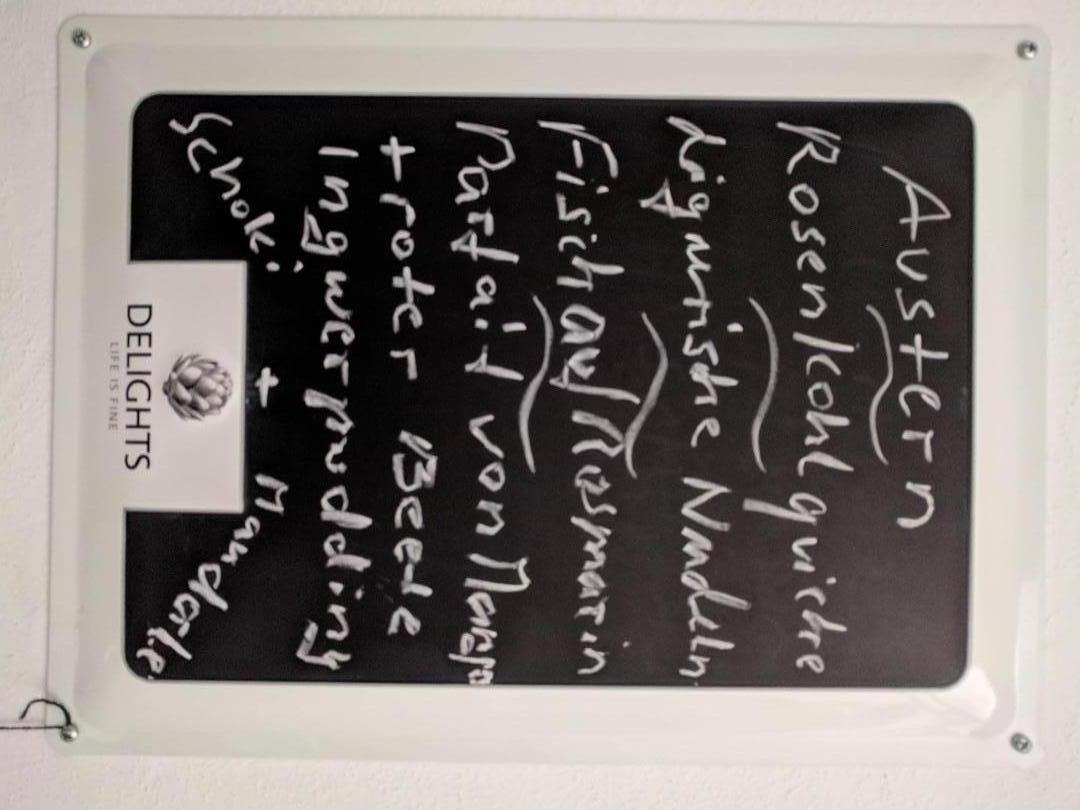 Austern
Rosenkohlquiche
ligurische Nudeln
Fisch auf Rosmarin
Parfait von Mango
+ roter Beete
Ingwerpudding
Schoki + Mandarine
DELIGHTS
LIFE IS FINE